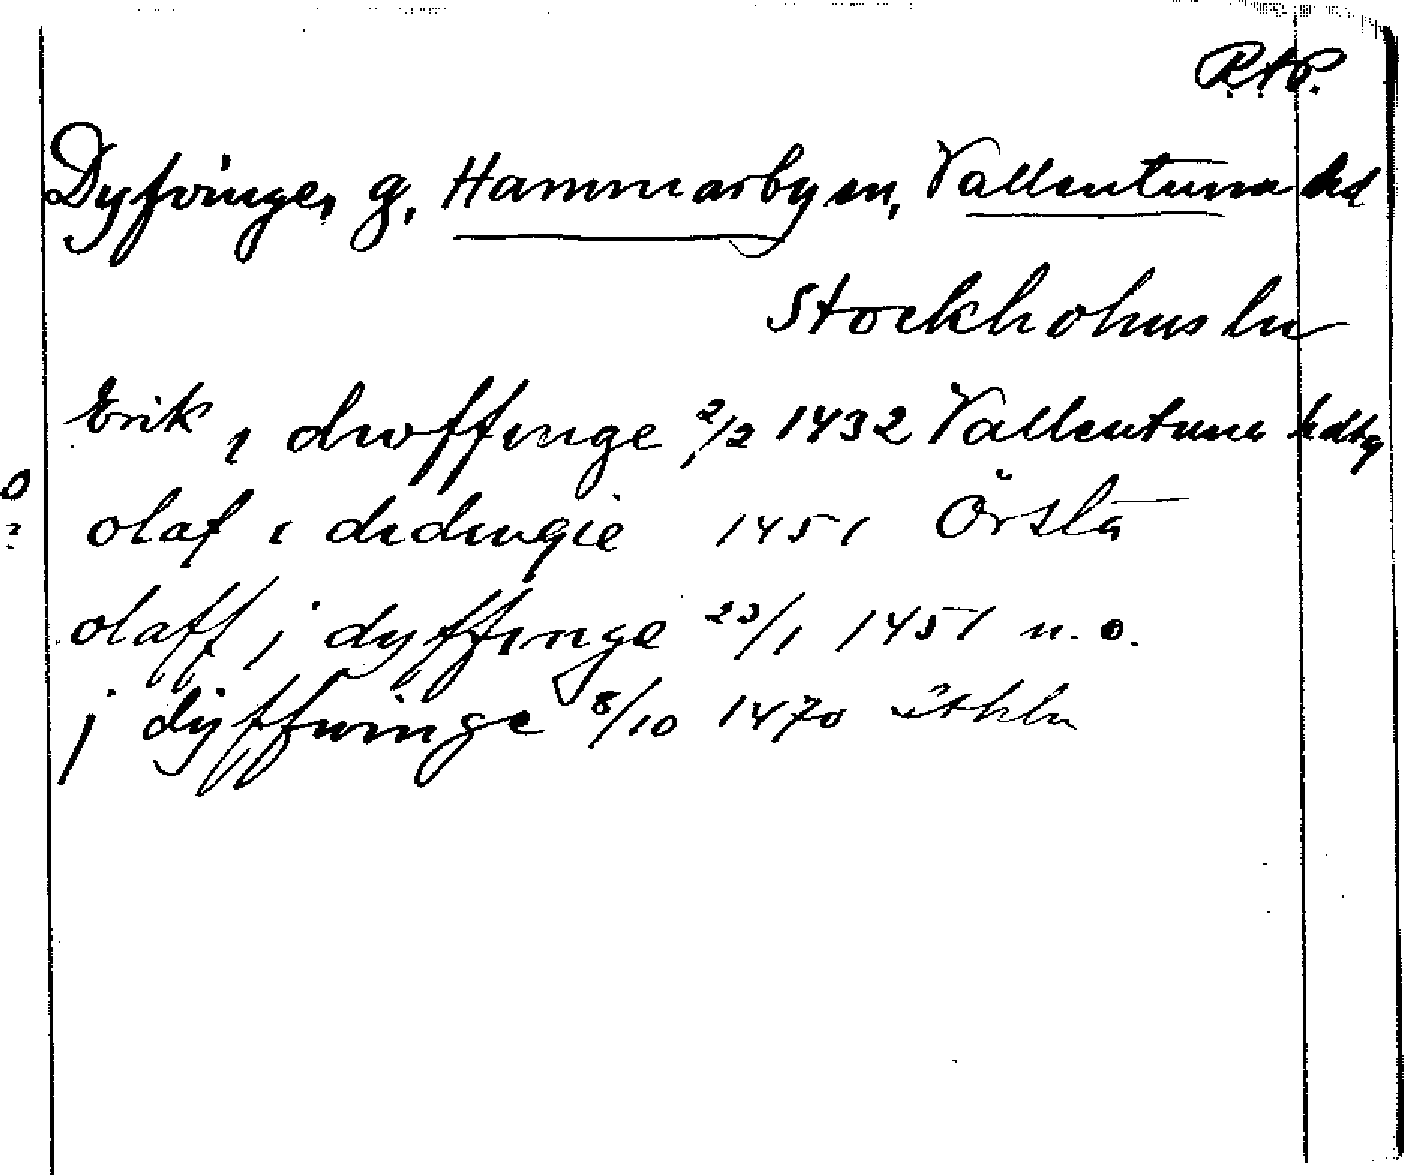 R.A.P.
Dyfvinge, g, Hammarby sn, Vallentuna hd
Stockholms län
Erik i diwffinge 2/2 1432 Vallentuna hdtg
olaf i didingie 1451 Örsta
olaff j dyffinge 23/1 1451 u.o.
j dyffwinge 8/10 1470